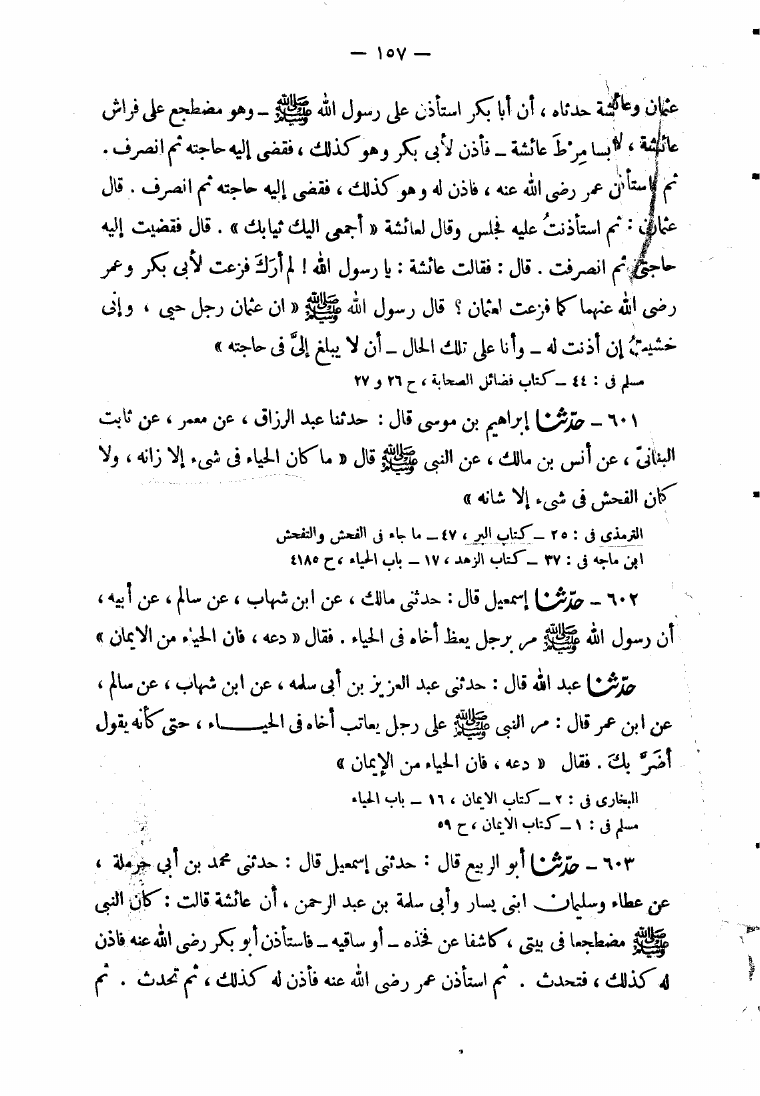 — ١٥٧ —
عثمان وعائشة حدثاه ، أن أبا بكر استأذن على رسول الله ﷺ – وهو مضطجع على فراش
عائشة ، لابسا مِرْطَ عائشة – فأذن لأبى بكر وهو كذلك ، فقضى إليه حاجته ثم انصرف .
ثم استأذن عمر رضى الله عنه ، فاذن له وهو كذلك ، فقضى إليه حاجته ثم انصرف . قال
عثمان : ثم استأذنتُ عليه فجلس وقال لعائشة « أجمعى اليك ثيابك » . قال فقضيت إليه
حاجتى ثم انصرفت . قال : فقالت عائشة : يا رسول الله ! لم أرَكَ فزعت لأبى بكر وعمر
رضى الله عنهما كما فزعت لعثمان ؟ قال رسول الله ﷺ « ان عثمان رجل حيى ، وإنى
خشيتُ إن أذنت له – وأنا على تلك الحال – أن لا يبلغ إلىَّ فى حاجته »
مسلم فى : ٤٤ – كتاب فضائل الصحابة ، ح ٢٦ و ٢٧
٦٠١ – حدّثنا إبراهيم بن موسى قال : حدثنا عبد الرزاق ، عن معمر ، عن ثابت
البنانىّ ، عن أنس بن مالك ، عن النبى ﷺ قال « ما كان الحياء فى شىء إلا زانه ، ولا
كان الفحش فى شىء إلا شانه »
الترمذى فى : ٢٥ – كتاب البر ، ٤٧ – ما جاء فى الفحش والتفحش
ابن ماجه فى : ٣٧ – كتاب الزهد ، ١٧ – باب الحياء ، ح ٤١٨٥
٦٠٢ – حدّثنا إسمعيل قال : حدثنى مالك ، عن ابن شهاب ، عن سالم ، عن أبيه ،
أن رسول الله ﷺ مر برجل يعظ أخاه فى الحياء . فقال « دعه ، فان الحياء من الايمان »
حدّثنا عبد الله قال : حدثنى عبد العزيز بن أبى سلمه ، عن ابن شهاب ، عن سالم ،
عن ابن عمر قال : مر النبى ﷺ على رجل يعاتب أخاه فى الحيــاء ، حتى كأنه يقول
أضَرَّ بكَ . فقال « دعه ، فان الحياء من الإيمان »
البخارى فى : ٢ – كتاب الايمان ، ١٦ – باب الحياء
مسلم فى : ١ – كتاب الايمان ، ح ٥٩
٦٠٣ – حدّثنا أبو الربيع قال : حدثنى إسمعيل قال : حدثنى محمد بن أبى حرملة ،
عن عطاء وسليمان ابنى يسار وأبى سلمة بن عبد الرحمن ، أن عائشة قالت : كان النبى
ﷺ مضطجعا فى بيتى ، كاشفا عن فخذه – أو ساقيه – فاستأذن أبو بكر رضى الله عنه فاذن
له كذلك ، فتحدث . ثم استأذن عمر رضى الله عنه فأذن له كذلك ، ثم تحدث . ثم